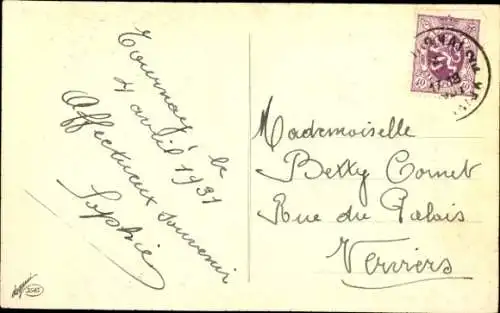 Tournay, le
4 avril 1931
Affectueux souvenir
Sophie
Mademoiselle
Betty Cornet
Rue du Palais
Verviers